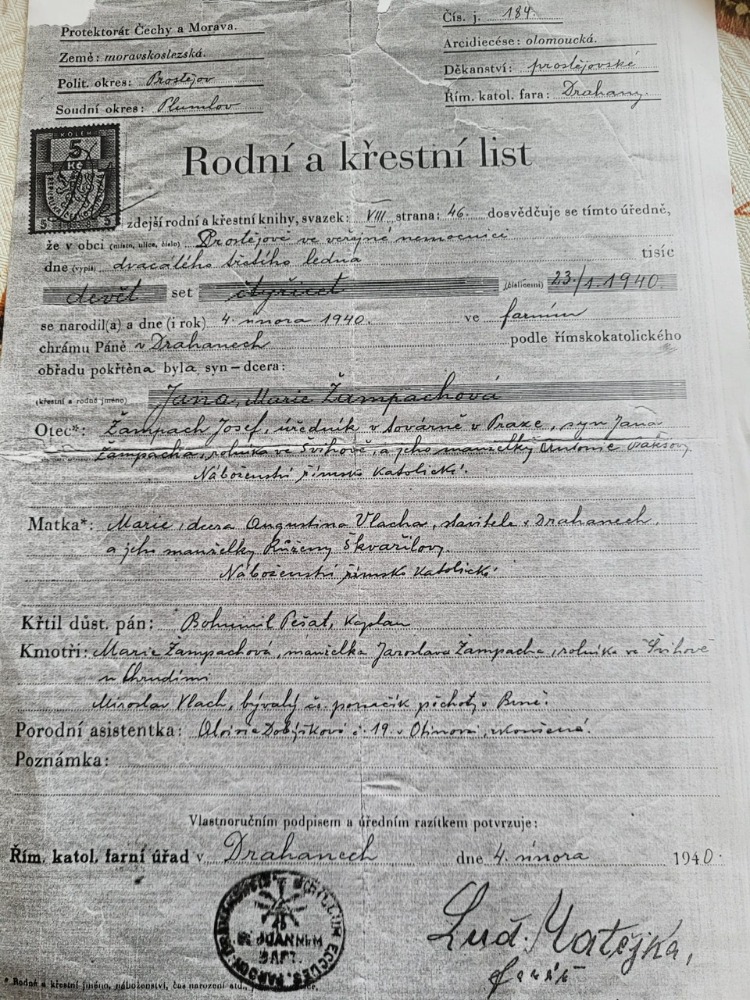 Protektorát Čechy a Morava.
Země: moravskoslezská.
Polit. okres: Prostějov
Soudní okres: Plumlov
Čís. j. 184.
Arcidiecése: olomoucká.
Děkanství: prostějovské
Řím. katol. fara: Drahany.
KOLEK
5
Kč
5 5
Rodní a křestní list
zdejší rodní a křestní knihy, svazek: VIII strana: 46. dosvědčuje se tímto úředně,
že v obci (místo, ulice, číslo) Prostějově ve veřejné nemocnici
dne (vypiš) dvacátého třetího ledna tisíc
devět set čtyřicet (číslicemi) 23./1. 1940.
se narodil(a) a dne (i rok) 4. února 1940. ve farním
chrámu Páně v Drahanech podle římskokatolického
obřadu pokřtěna byla syn-dcera:
(křestní a rodné jméno) Jana, Marie Žampachová
Otec*: Žampach Josef, úředník v Praze, syn Jana
Žampacha, rolníka ve Švihově, a jeho manželky Antonie
Náboženství římsko katolické.
Matka*: Marie, dcera Augustina Vlacha, stavitele v Drahanech,
a jeho manželky Růženy Skvařilovy.
Náboženství římsko katolické.
Křtil důst. pán: Bohumil Pešat, kaplan
Kmotři: Marie Žampachová, manželka Jaroslava Žampacha, rolníka ve Švihově
u Chrudimi
Miroslav Vlach, bývalý čs. poručík pěchoty v Brně.
Porodní asistentka: Aloisie č. 19. v Otinovsi, zkoušená.
Poznámka:
Vlastnoručním podpisem a úředním razítkem potvrzuje:
Řím. katol. farní úřad v Drahanech dne 4. února 1940.
SIGILLUM ECCLES. PAROCH.
JOANNEM
BAPT.
Lud. Matějka,
farář
* Rodné a křestní jméno, náboženství, čas narození atd.,